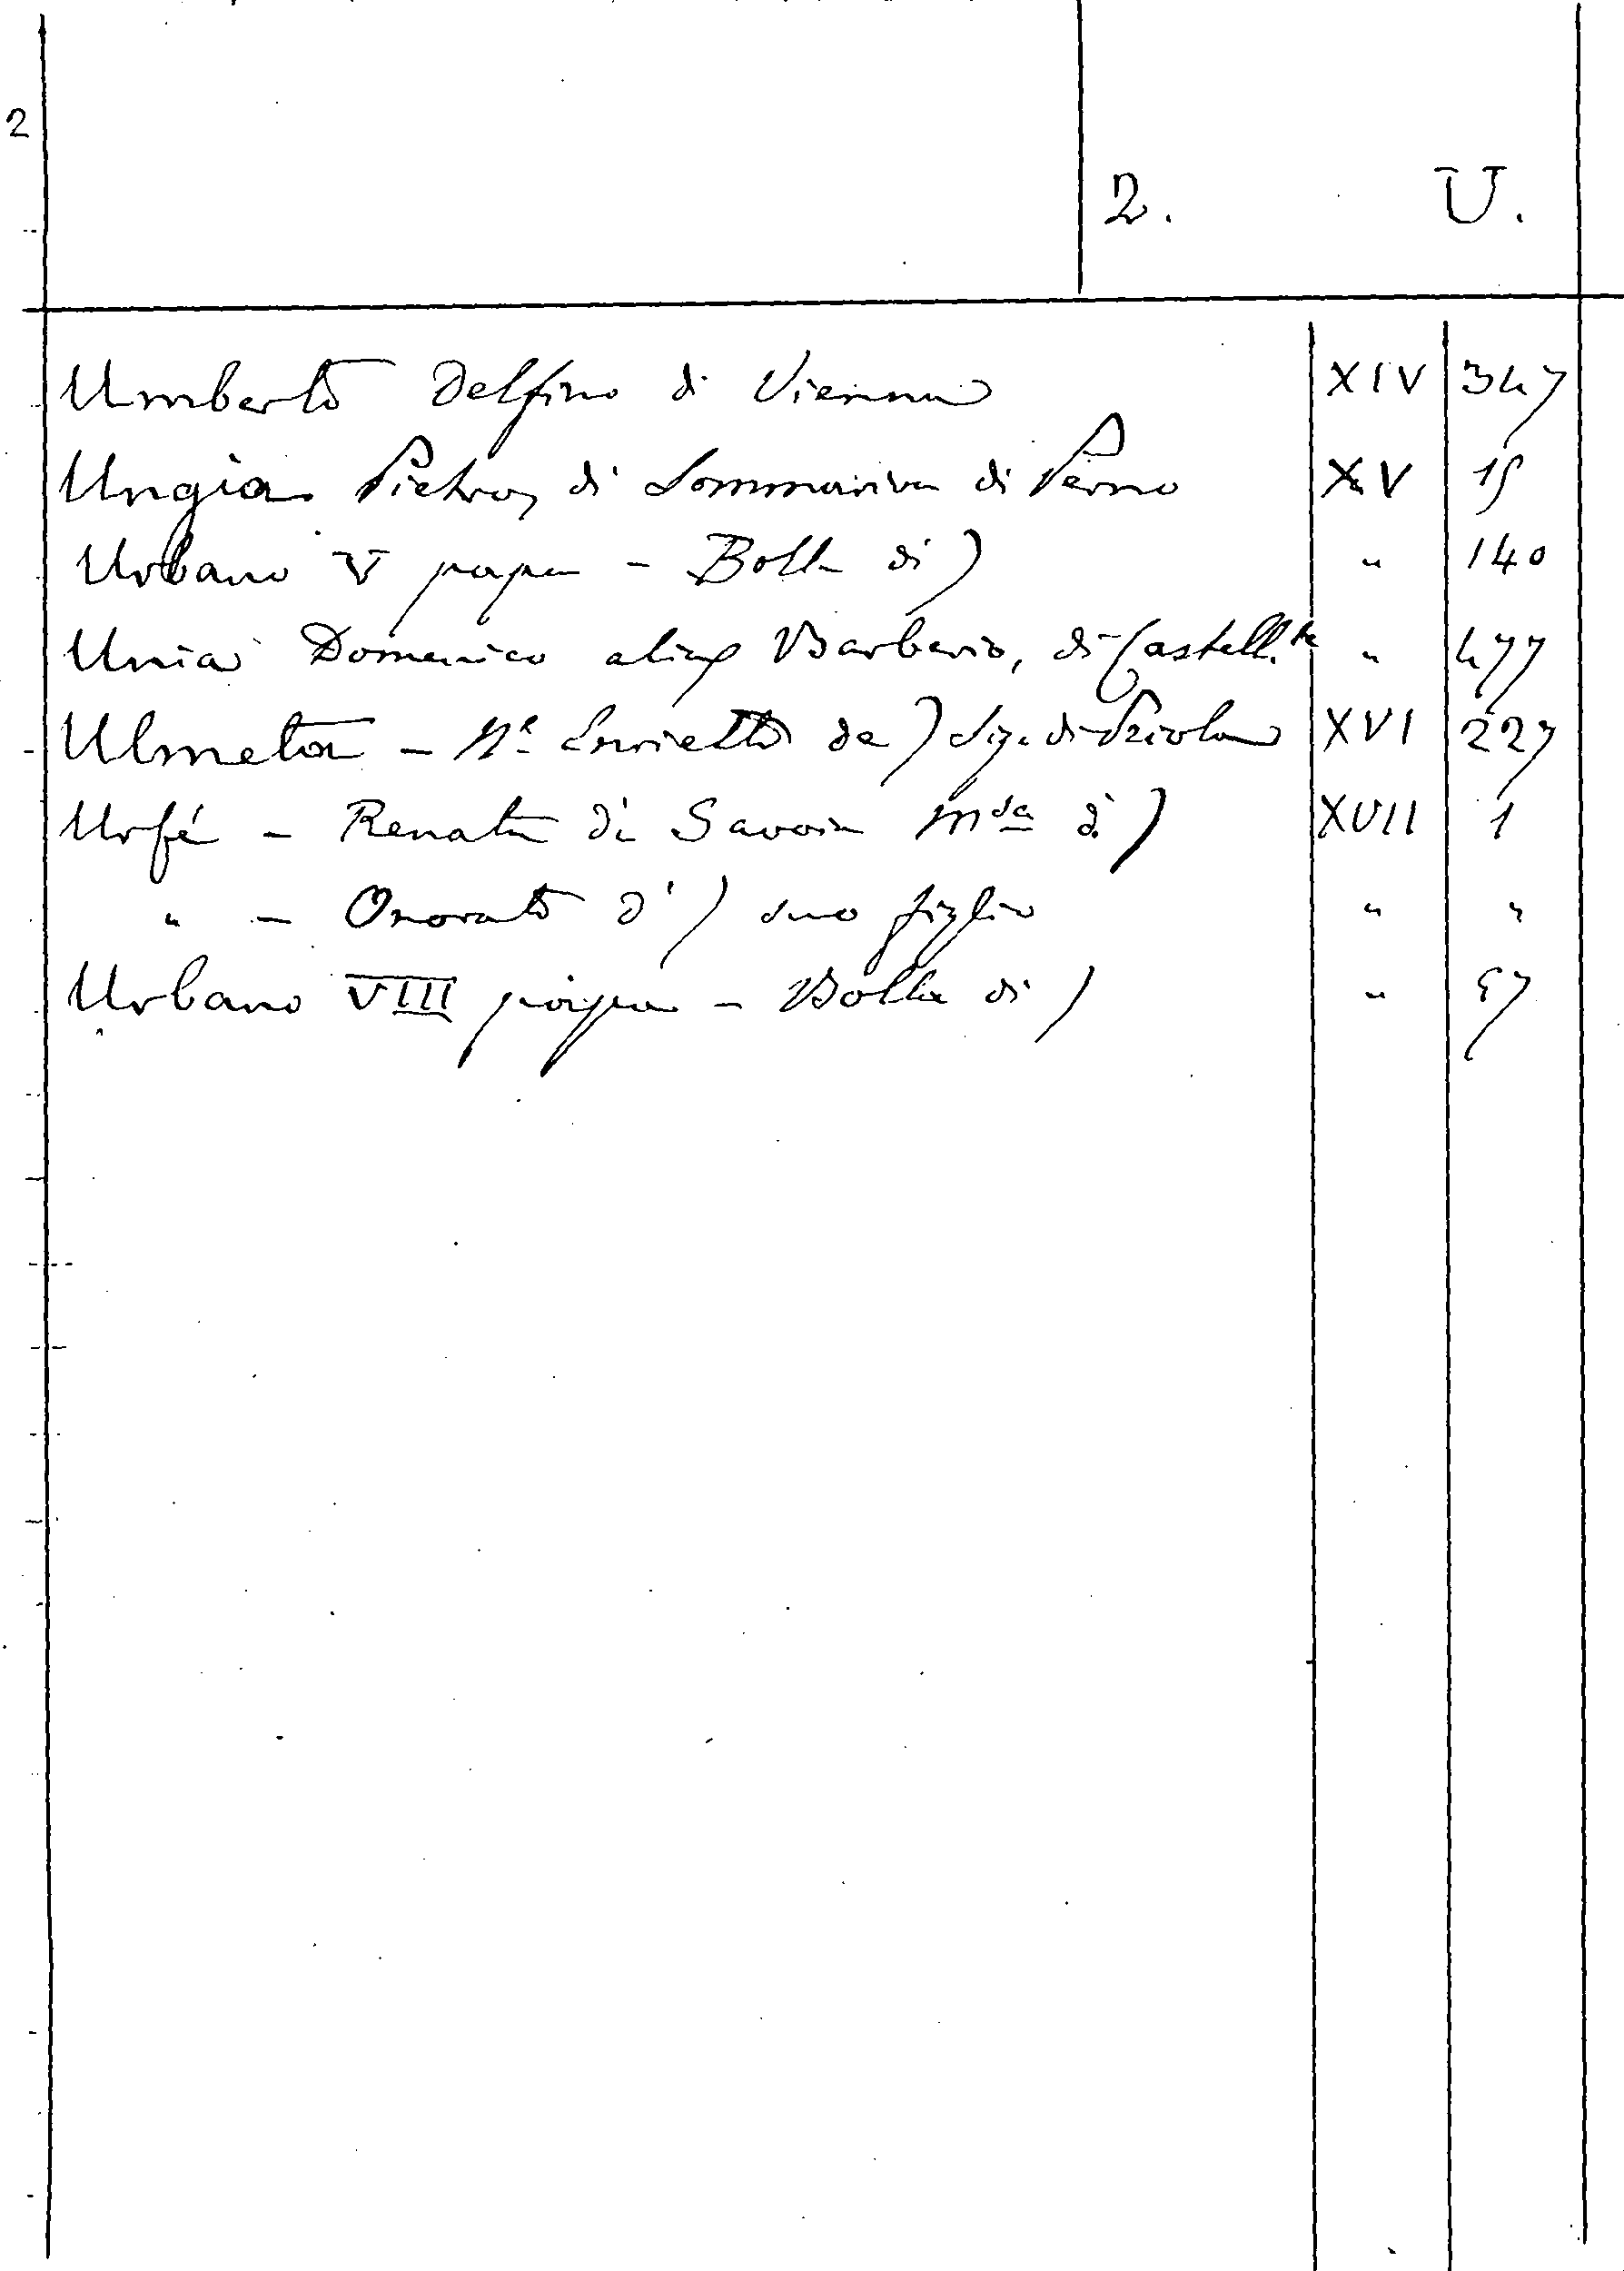 2
2. U.
Umberto Delfino di Vienna XIV 347
Ungia Pietro, di Sommariva di Perno XV 15
Urbano V papa - Bolla di) " 140
Unia Domenico alias Barberio, di Castell.to " 477
Ulmeta - N.e Enrietto de) Sig. di Priola XVI 227
Urfé - Renata di Savoia Msa d') XVII 1
" - Onorato d') suo figlio " "
Urbano VIII papa - Bolla di) " 57